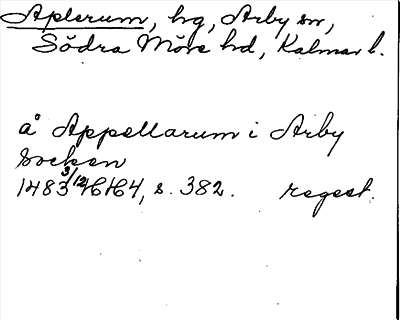 Aplerum, hg, Arby sn,
Södra Möre hd, Kalmar l.
å Appellarum i Arby
socken
1483 3/12 HH4, s. 382. regest.